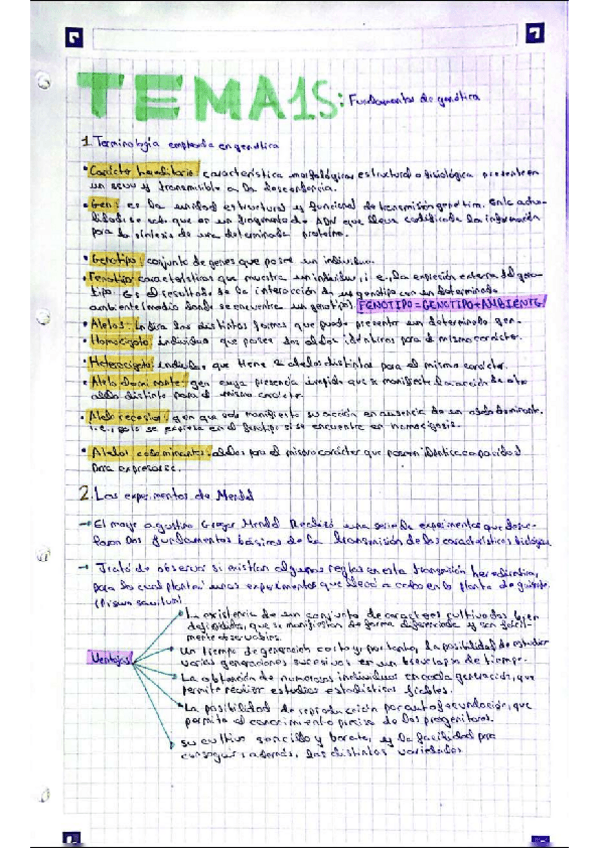 TEMA 15: Fundamentos de genética
1. Terminología empleada en genética
• Carácter hereditario: característica morfológica, estructural o fisiológica presente en
un ser vivo y transmisible a la descendencia.
• Gen: es la unidad estructural y funcional de transmisión genética. En la actua-
lidad se sabe que es un fragmento de ADN que lleva codificada la información
para la síntesis de una determinada proteína.
• Genotipo: conjunto de genes que posee un individuo.
• Fenotipo: características que muestra un individuo, i.e., la expresión externa del geno-
tipo. Es el resultado de la interacción de su genotipo con un determinado
ambiente (medio donde se encuentre un genotipo) FENOTIPO = GENOTIPO + AMBIENTE
• Alelos: indica las distintas formas que puede presentar un determinado gen.
• Homocigoto: individuo que posee dos alelos idénticos para el mismo carácter.
• Heterocigoto: individuo que tiene 2 alelos distintos para el mismo carácter.
• Alelo dominante: gen cuya presencia impide que se manifieste la acción de otro
alelo distinto para el mismo carácter.
• Alelo recesivo: gen que solo manifiesta su acción en ausencia de un alelo dominante.
i.e., solo se expresa en el fenotipo si se encuentra en homocigosis.
• Alelos codominantes: alelos para el mismo carácter que poseen idéntica capacidad
para expresarse.
2. Los experimentos de Mendel
→ El monje agustino Gregor Mendel realizó una serie de experimentos que desve-
laron los fundamentos básicos de la transmisión de las características biológicas
→ Trató de observar si existían algunas reglas en esta transmisión hereditaria,
para lo cual planteó unos experimentos que llevó a cabo en la planta de guisante.
(Pisum sativum)
Ventajas
La existencia de un conjunto de caracteres cultivados bien
definidos, que se manifiestan de forma diferenciada y son fácil-
mente observables.
Un tiempo de generación corto y, por tanto, la posibilidad de estudiar
varias generaciones sucesivas en un breve lapso de tiempo.
La obtención de numerosos individuos en cada generación, que
permite realizar estudios estadísticos fiables.
La posibilidad de reproducción por autofecundación, que
permite el conocimiento preciso de los progenitores.
Su cultivo sencillo y barato, y la facilidad para
conseguir, además, las distintas variedades.